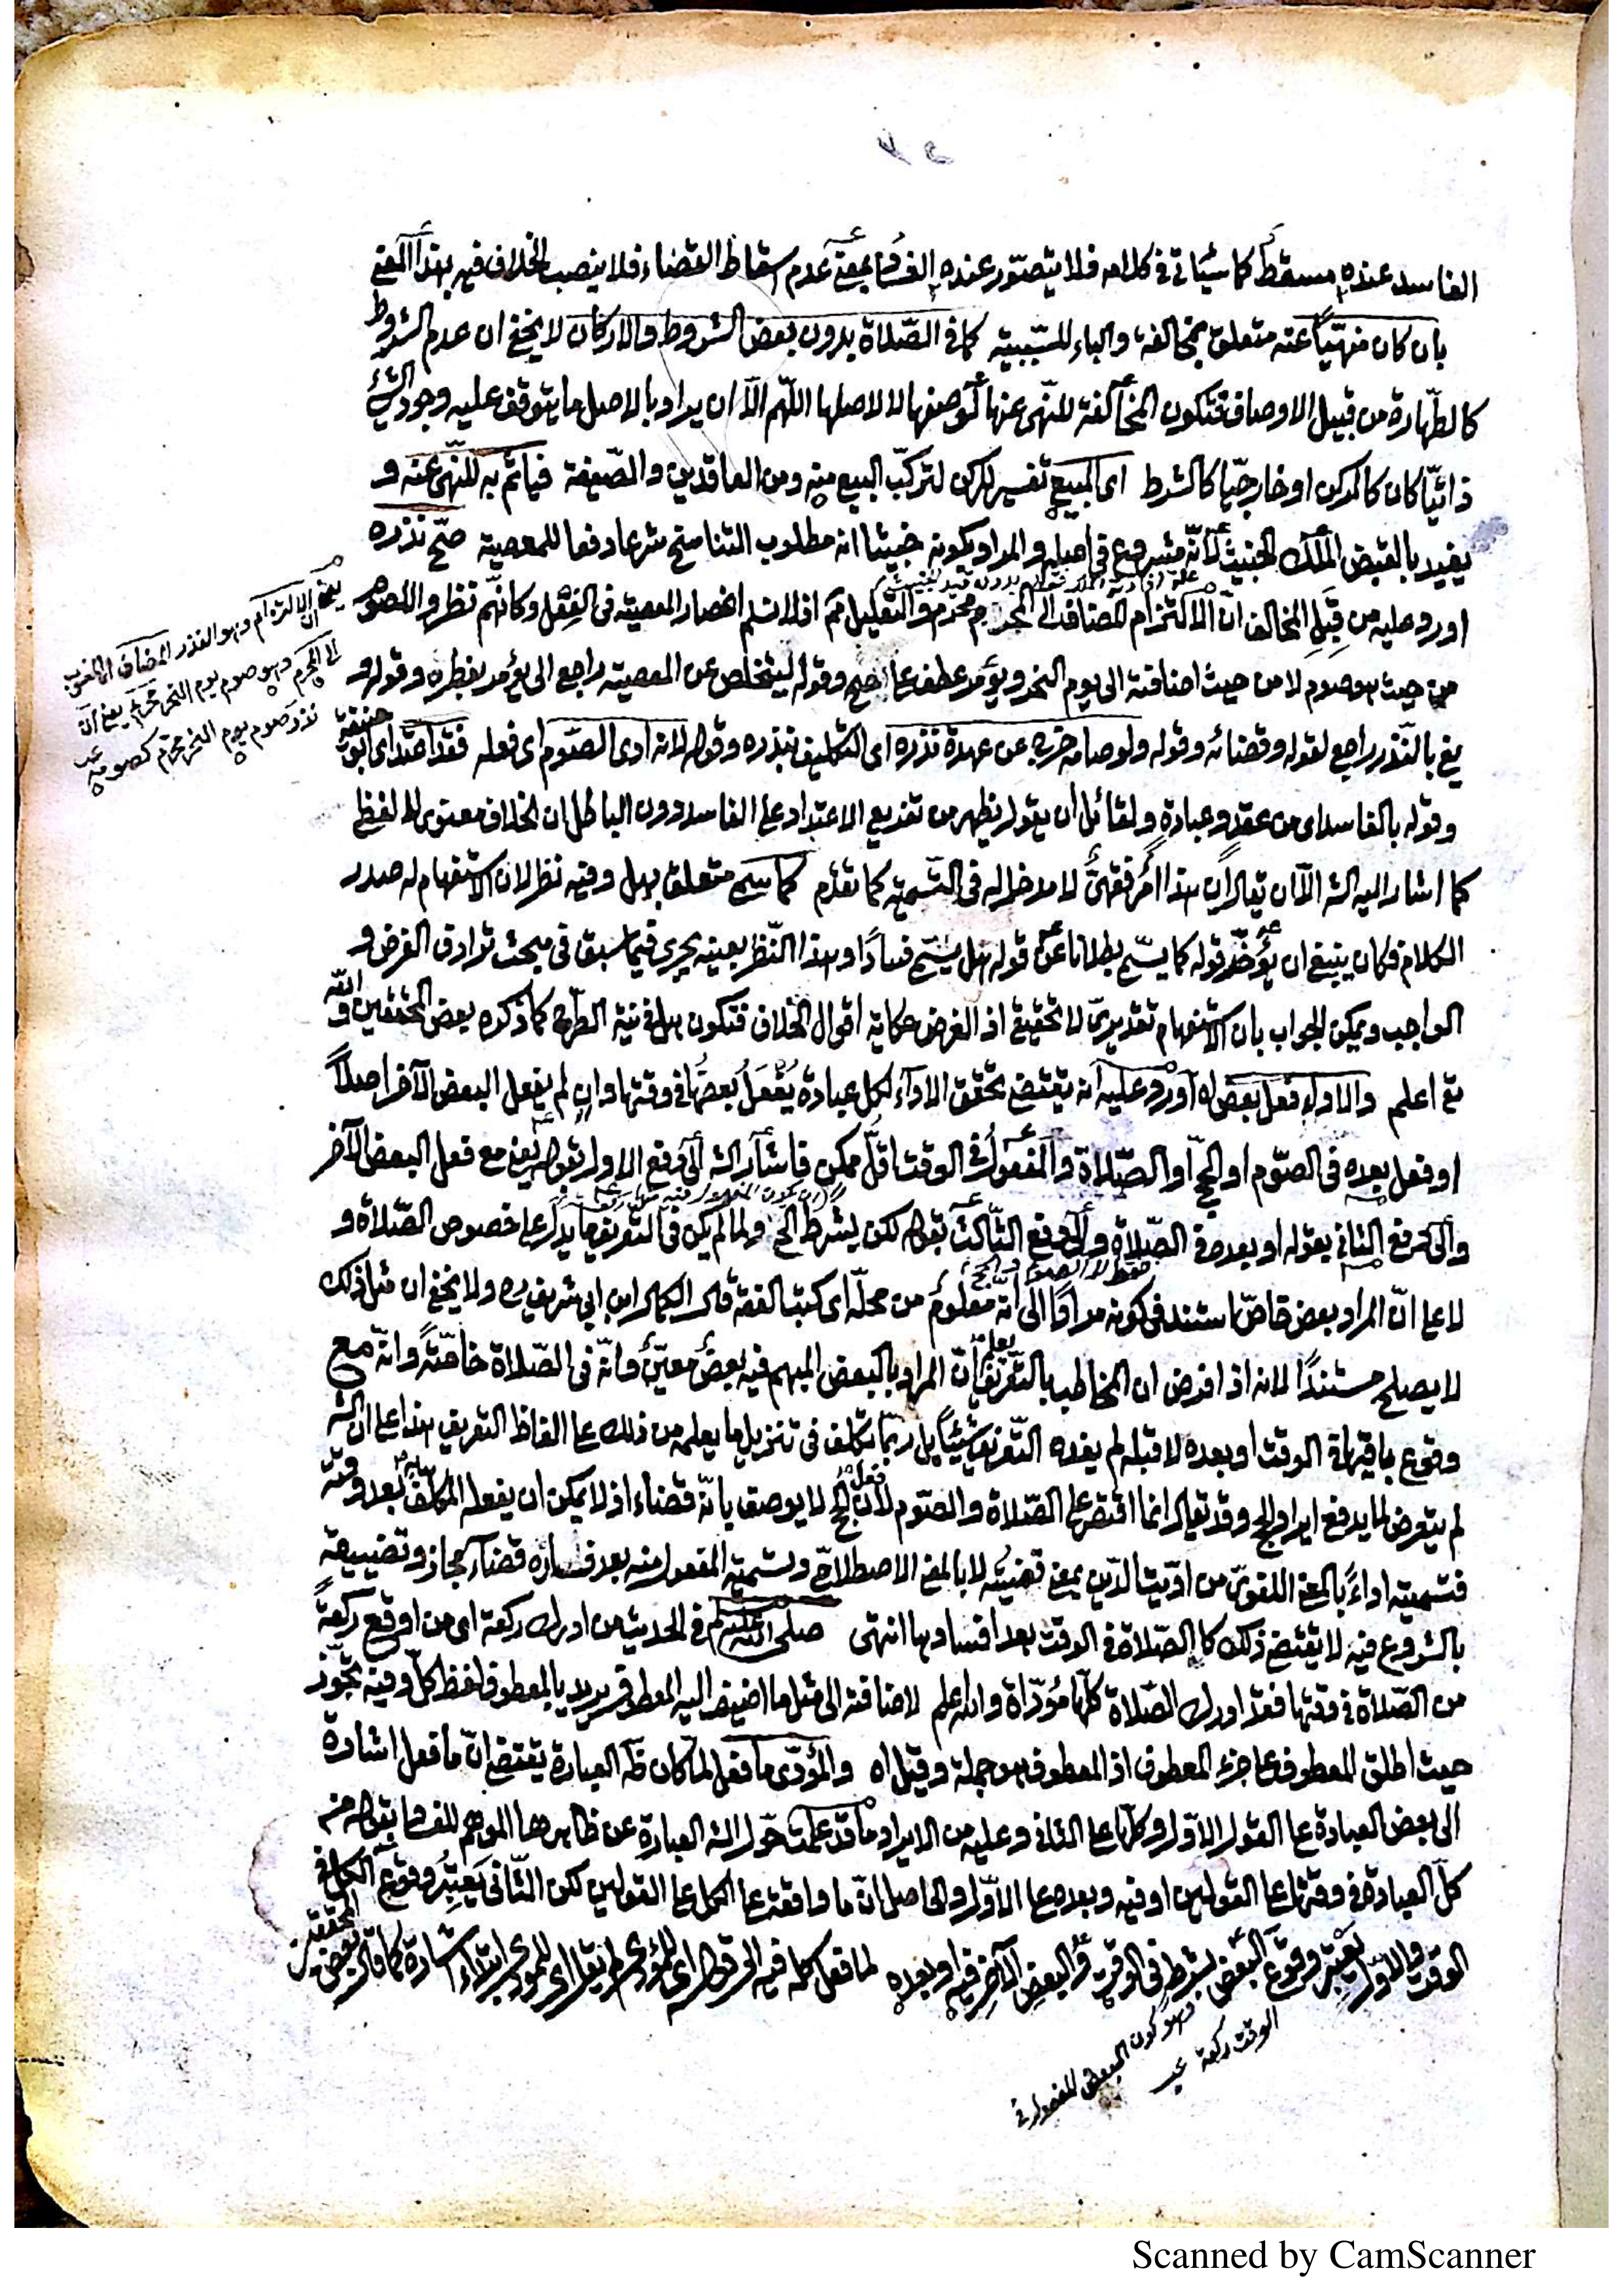 الفاسد عنده مسقط كما سيأتى فى كلامه فلا يتصوّر عنده الفساد بمعنى عدم اسقاط القضاء فلا ينصب الخلاف فيه بهذا المعنى
بان كان منهيّا عنه متعلق بمخالفة والباء للسّببية كما فى الصّلاة بدون بعض الشروط والاركان لا يخفى ان عدم الشروط
كالطّهارة من قبيل الاوصاف فتكون المخالفة للنّهى عنها لوصفها لا لاصلها اللّهم الّا ان يراد بالاصل ما يتوقف عليه وجود الشئ
ذاتيّا كان كالركن او خارجيّا كالشرط اى المبيع تفسير للركن لتركّب البيع منه ومن العاقدين والصّيغة فياثم به للنّهى عنه و
يفيد بالقبض الملك الخبيث لانّه مشروع فى اصله والمراد بكونه خبيثا انه مطلوب التفاسخ شرعا دفعا للمعصية صحّ نذره
اورد عليه من قِبَلِ المخالف انّ الالتزام المضاف الى المحرم محرّم والتعليل ثم اذ لا نسلم انحصار المعصية فى الفعل وكانّهم نظروا للصّوم
من حيث هو صوم لا من حيث اضافته الى يوم النحر ويؤمر عطف على صح وقوله ليتخلص عن المعصية راجع الى يؤمر بفطره وقوله و
يفى بالنّذر راجع لقوله وقضائه وقوله ولو صامه خرج عن عهدة نذره اى التكليف بنذره وقوله لانه ادى الصّوم اى فعله فقد اعتدّ اى ابو حنيفة
وقوله بالفاسد اى من عقد وعبادة ولقائل ان يقول يظهر من تفريع الاعتداد على الفاسد دون الباطل ان الخلاف معنوى لا لفظى
كما اشار اليه الشه الّا ان يقال ان هذا امر فقهىّ لا مدخل له فى التّسمية كما تقدّم كما يسمى متعلق بهل وفيه نظر لان الاستفهام له صدر
الكلام فكان ينبغى ان يؤخّر قوله كما يسمّى بطلانا عن قوله هل يسمّى فسادًا وهذا النّظر بعينه يجرى فيما سبق فى مبحث ترادف الفرض و
الواجب ويمكن الجواب بان الاستفهام تقديرىّ لا تحقيقى اذ الغرض حكاية اقوال الخلاف فتكون هل فى نية الطّرح كما ذكره بعض المحققين والله
تع اعلم والاداء فعل بعض اه اورد عليه انه يقتضى تحقق الاداء لكل عبادة يُفعَلُ بعضها فى وقتها وان لم يفعل البعض الآخر اصلاً
او فعل بعده فى الصّوم او الحجّ او الصّلاة والمفعول فى الوقت اقلّ ممكن فاشار الشه الى دفع الاول بقوله يعنى مع فعل البعض الآخر
والى دفع الثانى بقوله او بعده فى الصّلاة والى دفع الثّالث بقوله لكن يشرط الخ ولما لم يكن فى التّعريف ما يدلّ على خصوص الصّلاة و
لا على انّ المراد بعض خاصّ استند فى كونه مرادًا الى انّه معلوم من محلّه اى كتب الفقه قال الكمال ابن ابى شريف ره ولا يخفى ان مثل ذلك
لا يصلح مستندًا لانه اذا فرض ان المخاطب بالتّعريف يعلم انّ المراد بالبعض المبهم فيه بعضٌ معيّنٌ وانّه فى الصّلاة خاصّةً وانّه مع
وقوع باقيها فى الوقت او بعده لا قبله لم يفده التّعريف شيئًا بل ربّما تكلف فى تنزيل ما يعلمه من ذلك على الفاظ التعريف هذا على ان الشه
لم يتعرض لما يدفع ايراد الحج وقد يقال انما اقتصر على الصّلاة والصّوم لانّ فعل الحج لا يوصف بانّه قضاء اذ لا يمكن ان يفعله المكلف بعد وقته
فتسميته اداءً بالمعنى اللغوىّ من ادّيت الدّين بمعنى قضيته لا بالمعنى الاصطلاحىّ وتسمية المفعول منه بعد فساده قضاءً مجاز وتضييقه
بالشروع فيه لا يقتضى ذلك كالصّلاة فى الوقت بعد افسادها انتهى صلى الله عليه وسلم فى الحديث من ادرك ركعة اى من اوقع ركعة
من الصّلاة فى وقتها فقد ادرك الصّلاة كلّها مُؤدّاة والله اعلم لاضافته الى مثل ما اضيف اليه المعطوف يريد بالمعطوف لفظ كلّ وفيه تجوّز
حيث اطلق المعطوف على جزء المعطوف اذ المعطوف هو جملة وقيل اه والمؤدّى ما فعل لما كان ظه العبارة يقتضى انّ ما فعل اشارة
الى بعض العبادة على القول الاوّل وكلّها على الثانى وعليه من الايراد ما قد علمت حوّل الشه العبارة عن ظاهرها الموهم للفساد بقوله من
كلّ العبادة فى وقتها على القولين او فيه وبعده على الاوّل والحاصل انّ ما واقعة على الكل على القولين لكن الثّانى يعتبر وقوع الكل فى
الوقت والاوّل يعتبر وقوع البعض بشرطه فى الوقت والبعض الآخر فيه او بعده لما فعل كله فيه الى قوله اى المؤدى لم يقل اى المؤدى ابتداء اشارة كما قال بعض المحققين
يعنى ان الالتزام وهو النذر المضاف اى المنسوب
الى المحرم وهو صوم يوم النحر محرّم يعنى انّ
نذر صوم يوم النحر محرّم كصومه
وهو كون البعض المفعول فى
الوقت ركعة
Scanned by CamScanner